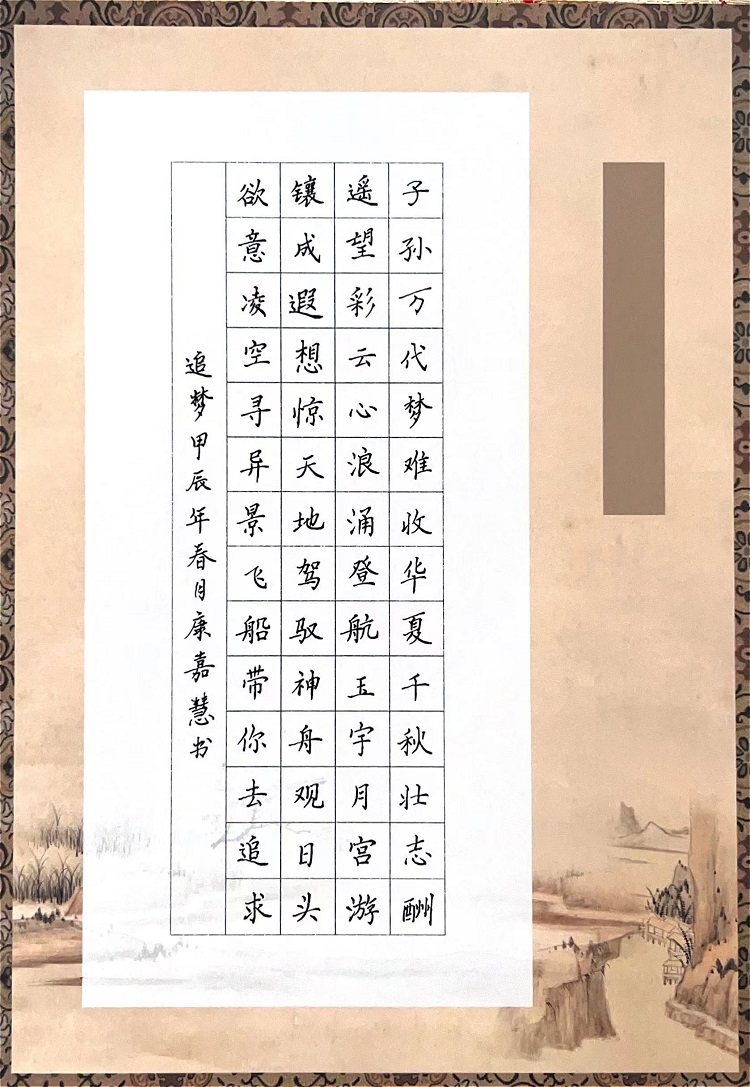 子孙万代梦难收华夏千秋壮志酬
遥望彩云心浪涌登航玉宇月宫游
镶成遐想惊天地驾驭神舟观日头
欲意凌空寻异景飞船带你去追求
追梦甲辰年春月康嘉慧书